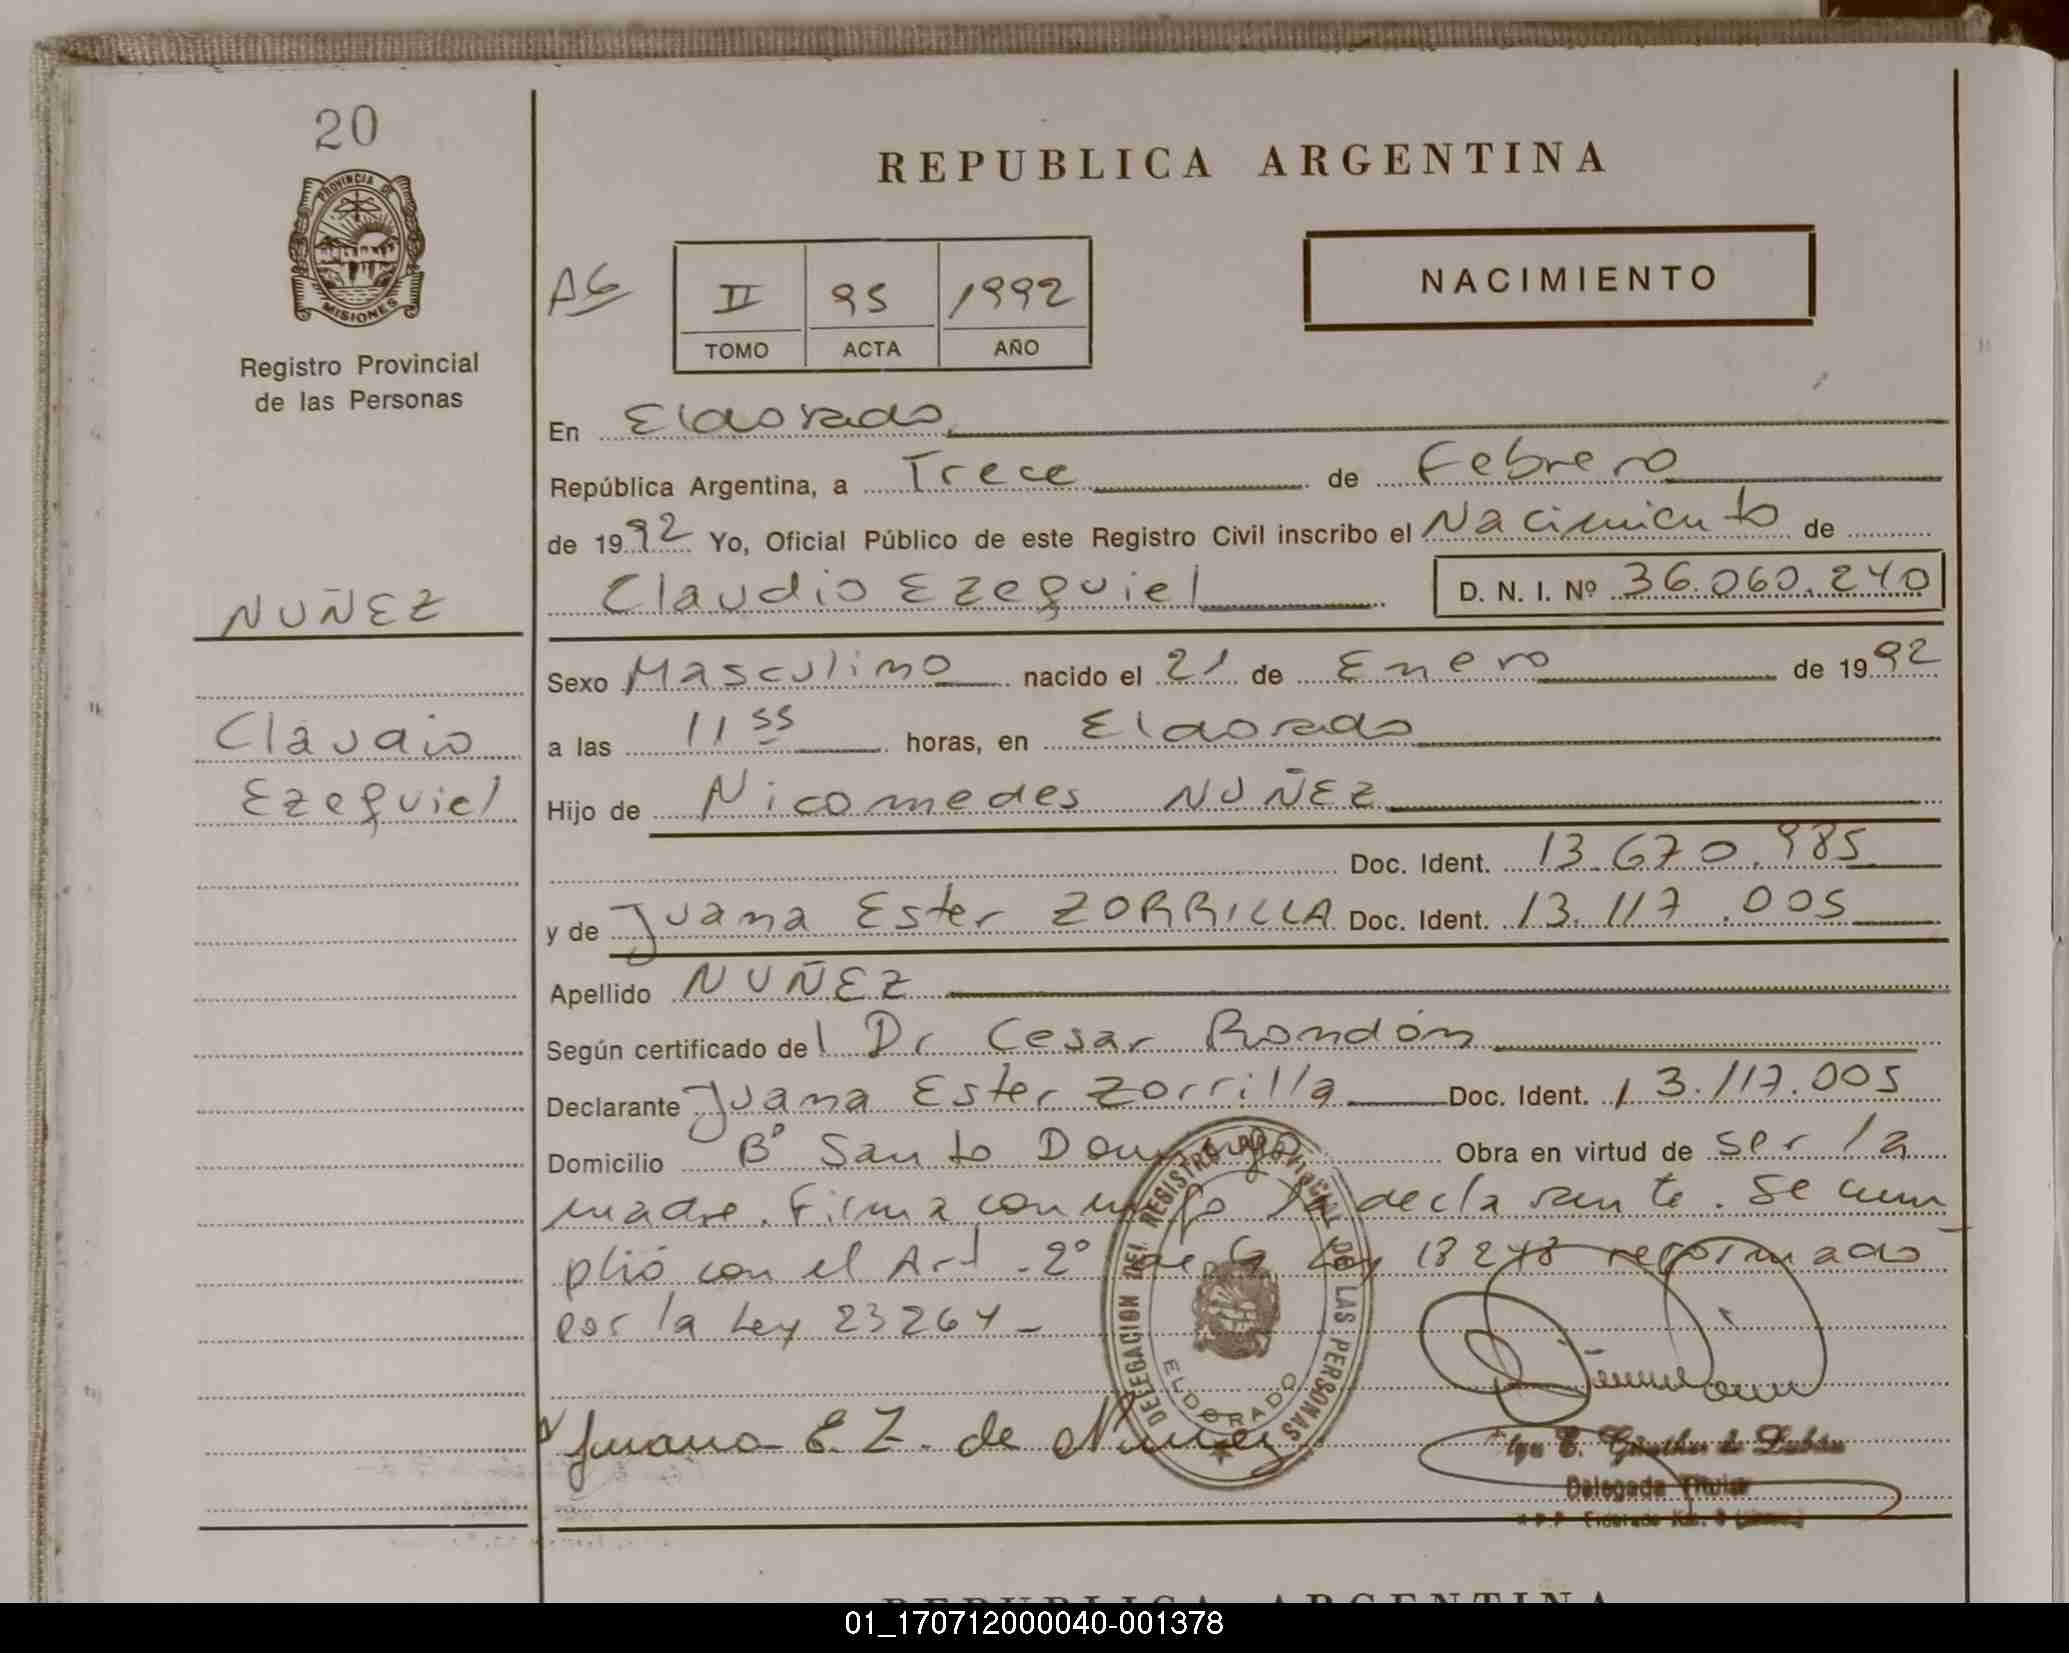 20
PROVINCIA DE
MISIONES
Registro Provincial
de las Personas
NUÑEZ
Claudio
Ezequiel
REPUBLICA ARGENTINA
AG
II 95 1992
TOMO ACTA AÑO
NACIMIENTO
En Eldorado
República Argentina, a Trece de Febrero
de 1992 Yo, Oficial Público de este Registro Civil inscribo el Nacimiento de
Claudio Ezequiel D. N. I. Nº 36.060.240
Sexo Masculino nacido el 21 de Enero de 1992
a las 11 55 horas, en Eldorado
Hijo de Nicomedes NUÑEZ
Doc. Ident. 13.670.985
y de Juana Ester ZORRILLA Doc. Ident. 13.117.005
Apellido NUÑEZ
Según certificado del Dr Cesar Rondón
Declarante Juana Ester Zorrilla Doc. Ident. 13.117.005
Domicilio Bº Santo Domingo Obra en virtud de ser la
madre. Firma conmigo la declarante. Se cum
plió con el Art. 2º de la Ley 18248 reformado
por la Ley 23264-
DELEGACION DEL REGISTRO PROVINCIAL DE LAS PERSONAS
ELDORADO
Juana E. Z. de Nuñez
Delegada Titular
REPUBLICA ARGENTINA
01_170712000040-001378